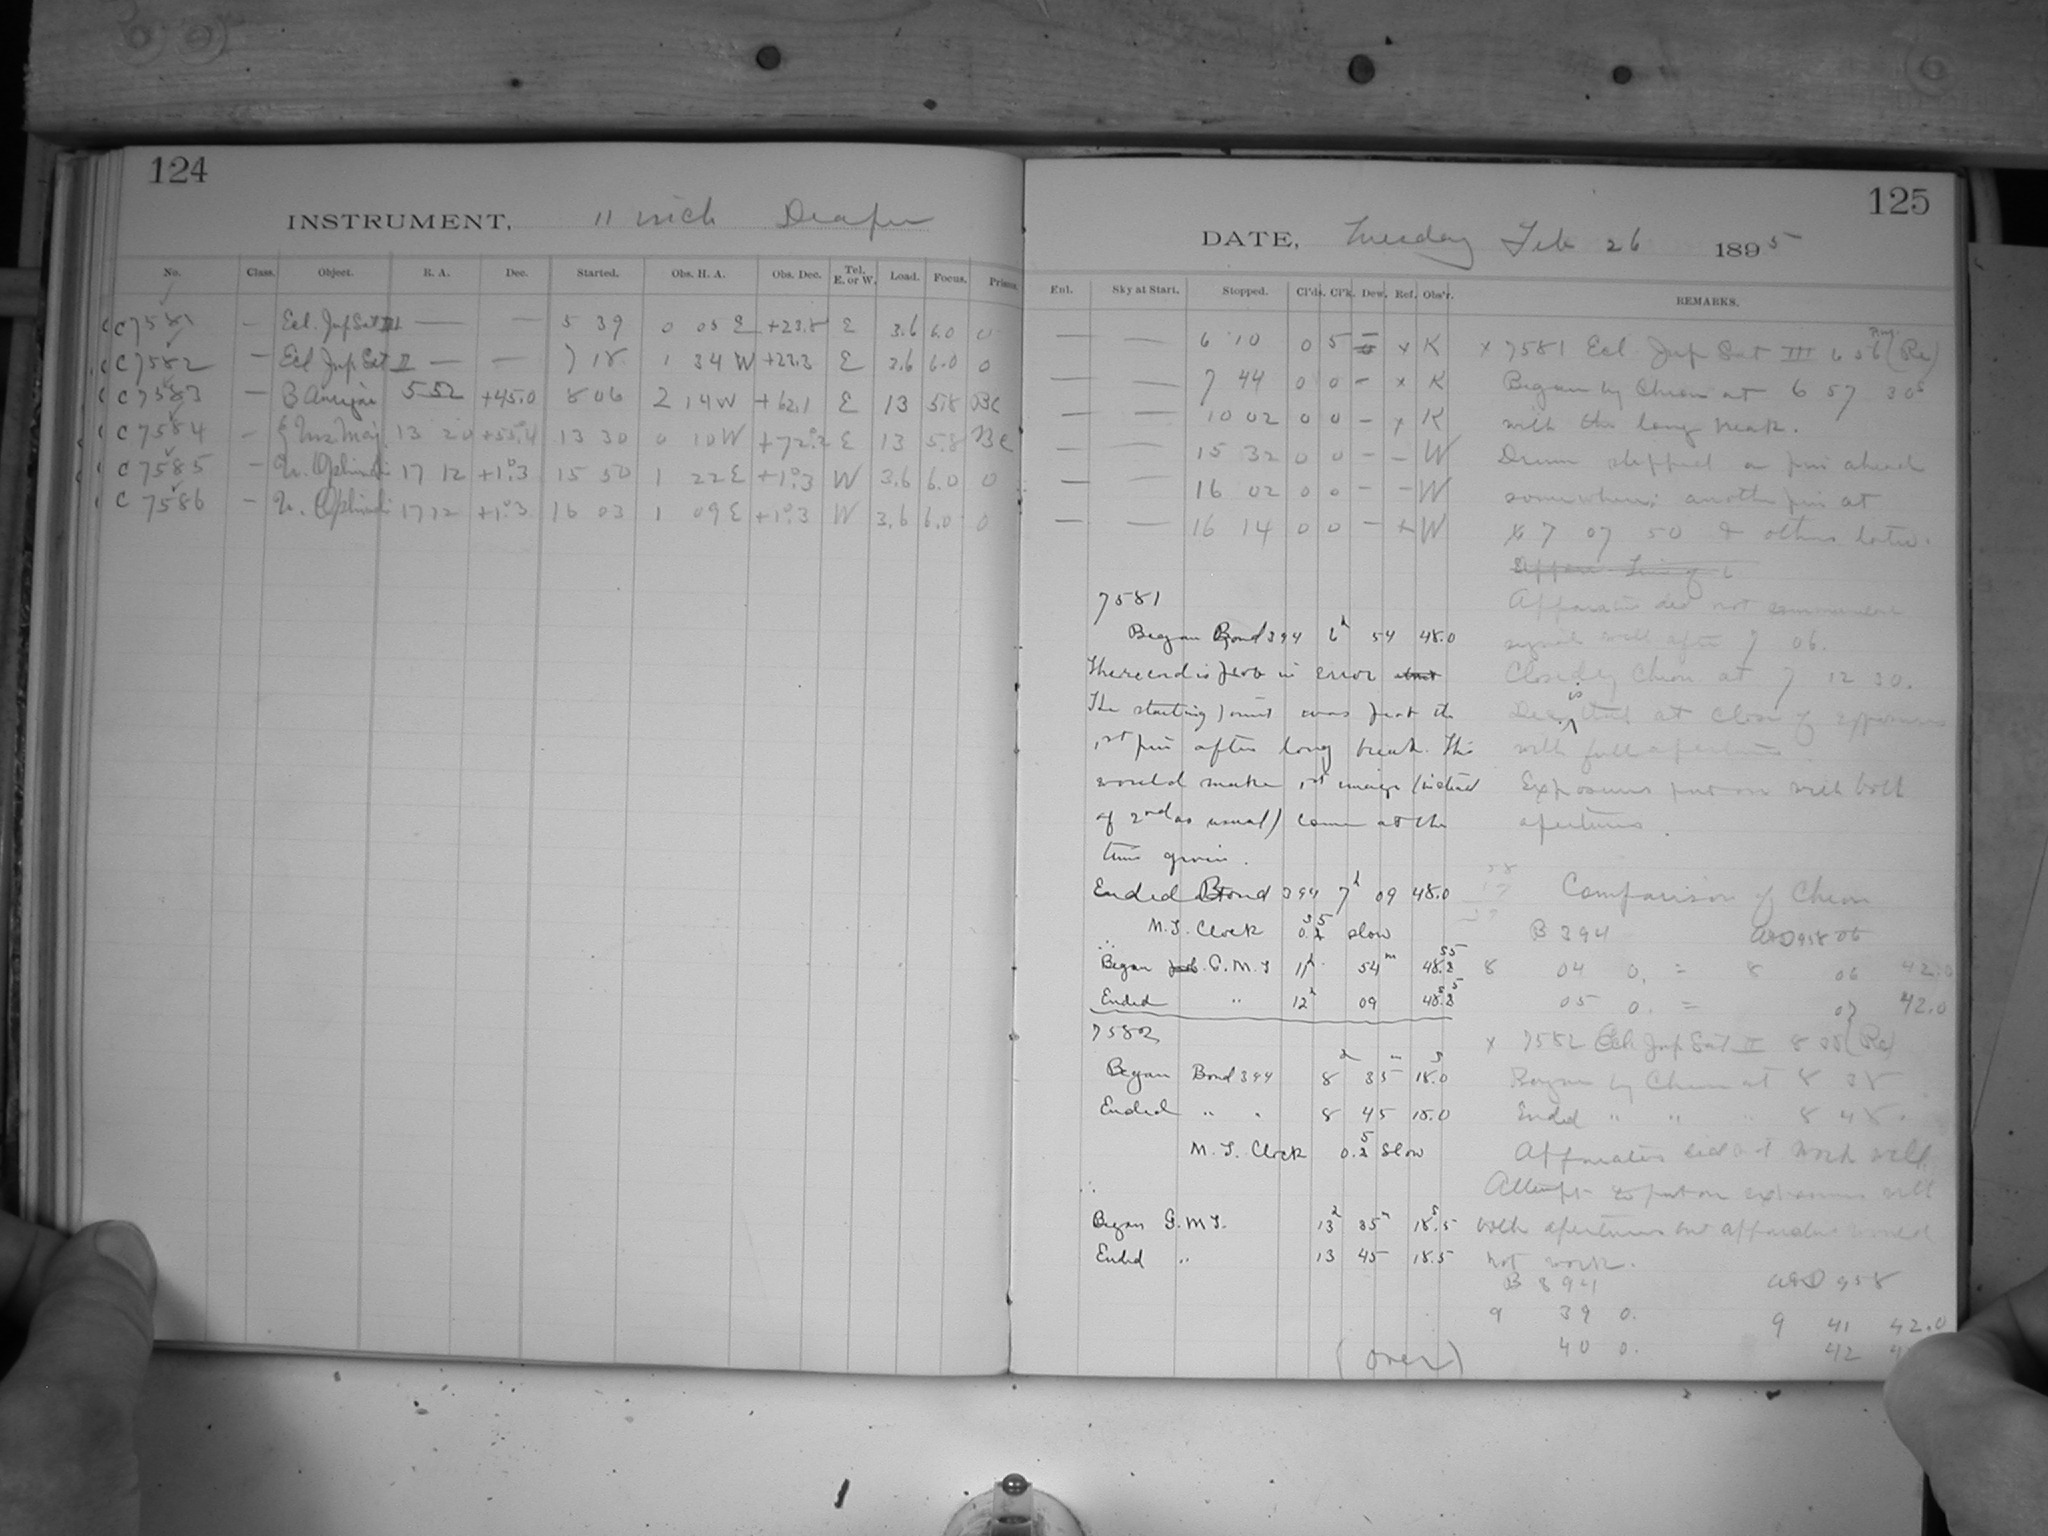 124
INSTRUMENT, 11 inch Draper
No. Class. Object. R. A. Dec. Started. Obs. H. A. Obs. Dec. Tel. E. or W. Load. Focus. Prisms.
C 7581 — Ecl. Jup Sat III — — 5 39 0 05 E +23.8 E 3.6 6.0 0
C 7582 — Ecl Jup Sat II — — 7 18 1 34 W +23.3 E 3.6 6.0 0
C 7583 — B Aurigae 5 52 +45.0 8 06 2 14 W + 62.1 E 13 5.8 BC
C 7584 — ξ Urs. Maj. 13 20 +55.4 13 30 0 10 W +72.2 E 13 5.8 BC
C 7585 — U. Ophiuchi 17 12 +1.3 15 50 1 22 E +1.3 W 3.6 6.0 0
C 7586 — U. Ophiuchi 17 12 +1.3 16 03 1 09 E +1.3 W 3.6 6.0 0
125
DATE, Tuesday Feb 26 1895
Enl. Sky at Start. Stopped. Cl'ds. Cl'k. Dew. Ref. Obs'r. REMARKS.
— — 6 10 0 5 x K
— — 7 44 0 0 - x K
— — 10 02 0 0 - x K
— — 15 32 0 0 - - W
— — 16 02 0 0 - - W
— — 16 14 0 0 - x W
7581
Began Bond 394 6h 54 48.0
The record is prob in error
The starting point was just the
1st pin after long break. This
would make 1st image (instead
of 2nd as usual) come at the
time given.
Ended Bond 394 7h 09 48.0
M.T. Clock slow
∴ Began G.M.T 11h 54m
Ended " 12h 09
7582
Began Bond 394 8h 35m 18.0s
Ended " " 8 45 18.0
M.T. Clock slow
∴
Began G.M.T. 13h 35m 18.5s
Ended " 13 45 18.5
(over)
x 7581 Ecl Jup Sat III 6 56 (Re)
Began by Chron at 6 57 30s
with the long break.
Drum slipped a pin ahead
somewhere; another pin at
7 07 50 & others later.
Apparatus did not commence
signals well after 7 06.
Closed by Chron at 7 12 30.
at close of exposure
with full aperture
Exposures put on with both
apertures.
Comparison of Chron
B 394
8 04 0. = 8 06 42.0
05 0. = 07 42.0
x 7582 Ecl. Jup Sat II 8 35 (Re)
Began by Chron at 8 38
Ended " " " 8 48.
Apparatus did not work well.
Attempt to put on exposures with
both apertures but apparatus would
not work.
B 394 958
9 39 0. 9 41 42.0
40 0. 42